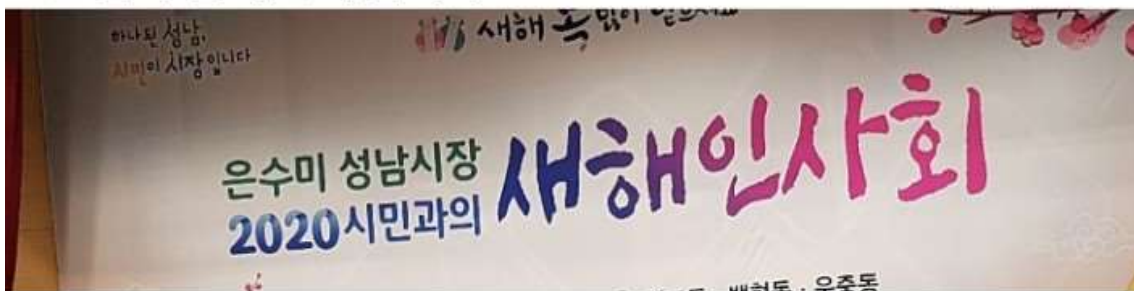 하나된 성남,
시민이 시장입니다
새해 복 많이 받으세요
은수미 성남시장
2020 시민과의
새해인사회
백현동 · 운중동